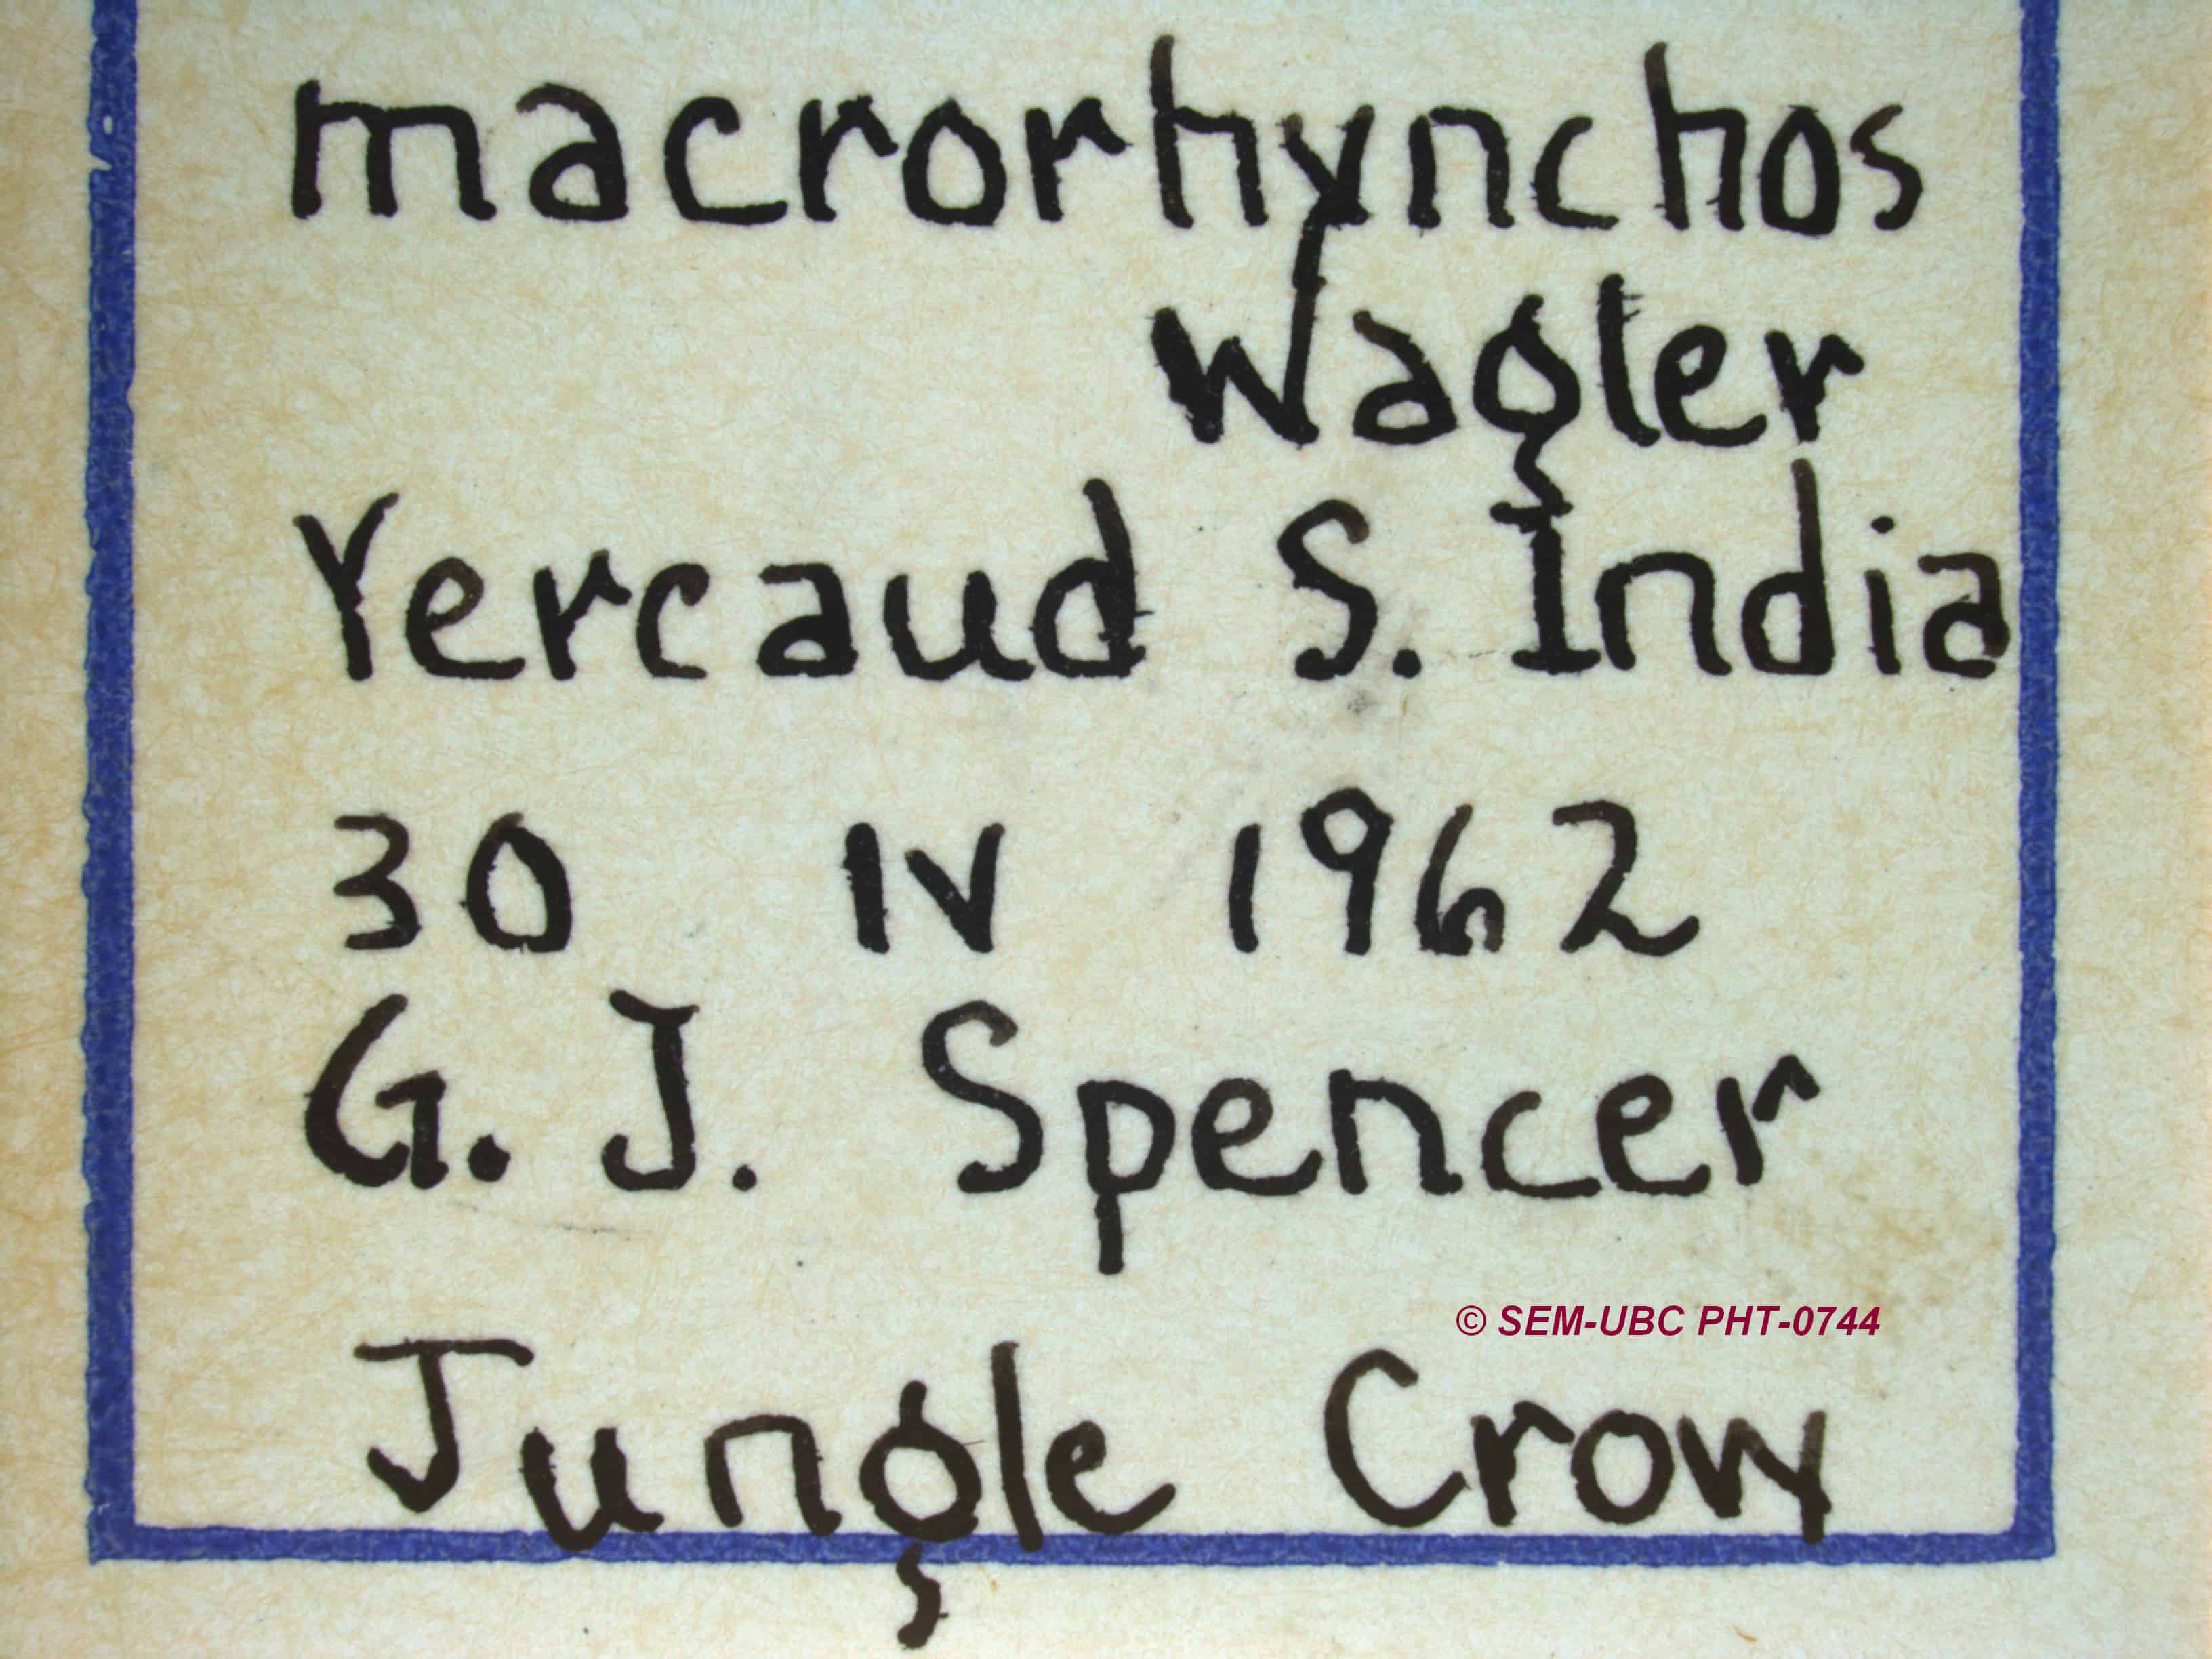 macrorhynchos
Wagler
Yercaud S. India
30 IV 1962
G. J. Spencer
© SEM-UBC PHT-0744
Jungle Crow